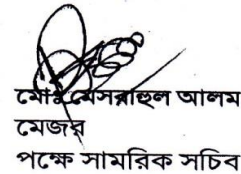 মোঃ মেসবাহুল আলম
মেজর
পক্ষে সামরিক সচিব